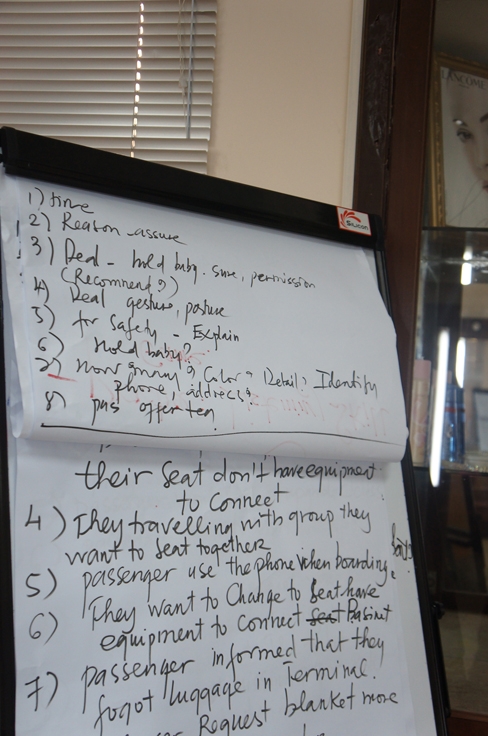 LANCOME
Silicon
1) time
2) Reason - assure
3) Deal - hold baby. sure, permission
(Recommend?)
4) Deal gesture, posture
5) for Safety - Explain
6) Hold baby?
7) How many? Color? Detail? Identify
phone, address?
8) pas offer tea
their seat don't have equipment
to connect
4) They travelling with group they
want to seat together
5) passenger use the phone when boarding.
6) They want to Change to Seat have
equipment to connect Basinet
7) passenger informed that they
fogot luggage in Terminal.
Request blanket more